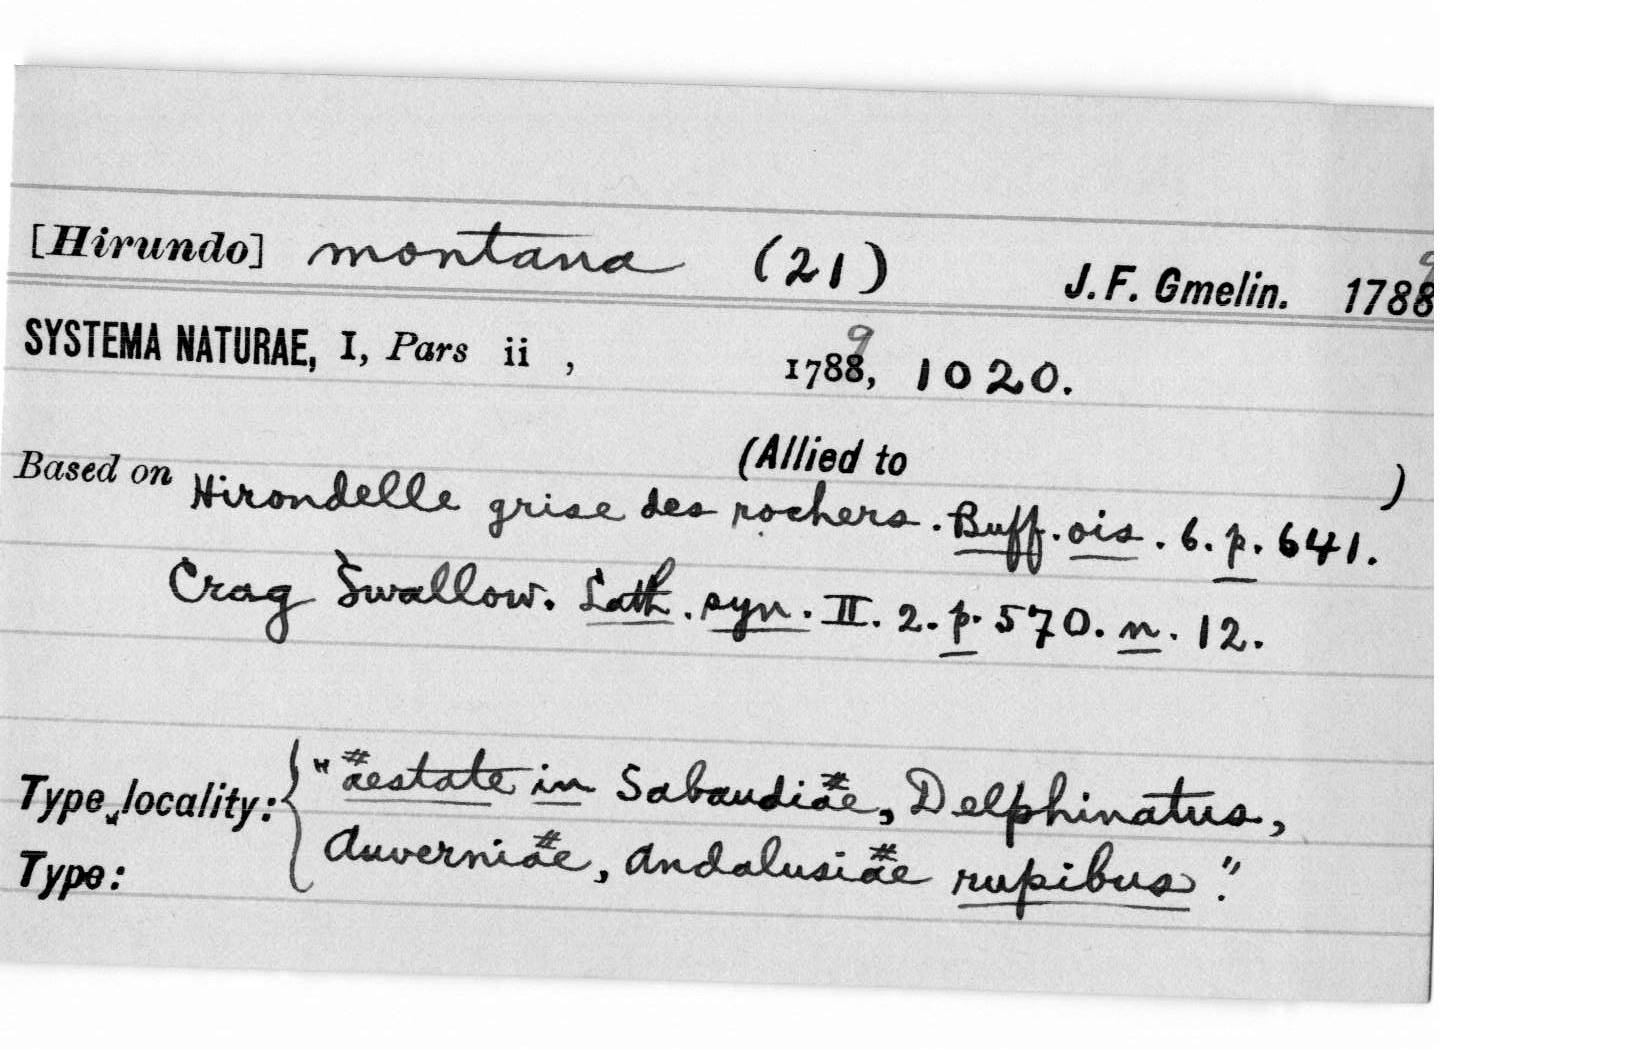 [Hirundo] montana (21) J. F. Gmelin. 1788 9
SYSTEMA NATURAE, I, Pars ii , 1788, 9 1020.
(Allied to )
Based on Hirondelle grise des rochers. Buff. ois. 6. p. 641.
Crag Swallow. Lath. syn. II. 2. p. 570. n. 12.
Type locality: { "aestate in Sabaudiae, Delphinatus,
Type: Auverniae, Andalusiae rupibus."